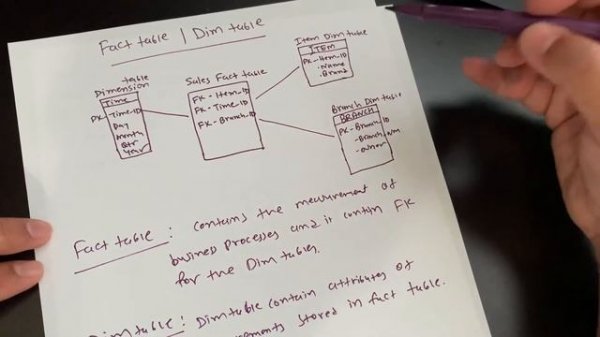 Fact table | Dim table
table
Dimension
Time
PK - Time-ID
Day
Month
Qtr
Year
Sales Fact table
FK - Item-ID
FK - Time-ID
FK - Branch-ID
Item Dim table
ITEM
PK - Item-ID
- Name
- Brand
Branch Dim table
BRANCH
PK - Branch-ID
- Branch-Nm
- owner
Fact table : contains the measurement of
business processes and it contain FK
for the Dim tables.
Dimtable : Dimtable contain attributes of
stored in fact table.